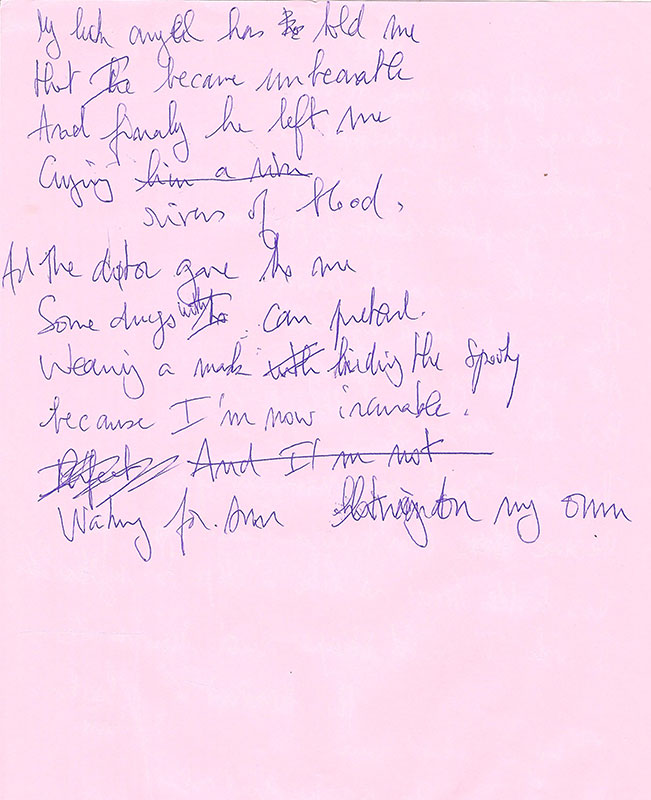 My luck angel has told me
that The became unbearable
And finaly he left me
Crying him a river
rivers of blood.
And the doctor gave to me
Some drugs with I can pretend.
Wearing a mask with hiding the
because I'm now incurable.
And If I'm not
Waiting for on my own